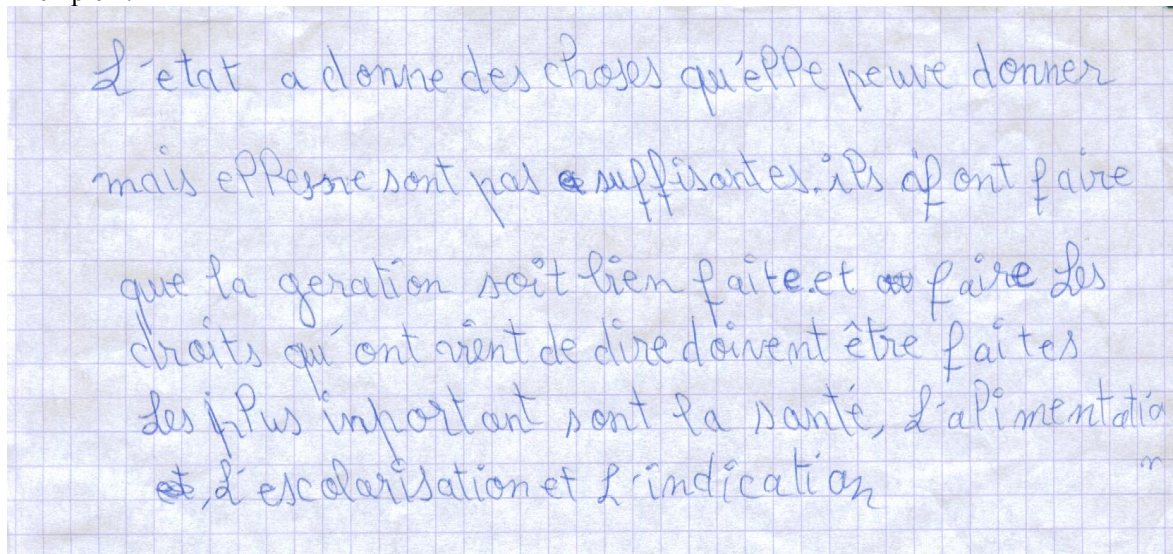 L'etat a donne des choses qu'elle peuve donner
mais elles ne sont pas suffisantes. ils font faire
que la geration soit bien faite. et faire Les
droits qu'ont vient de dire doivent être faites
Les plus inportant sont la santé, L'alimentation
, L'escolarisation et L'indication